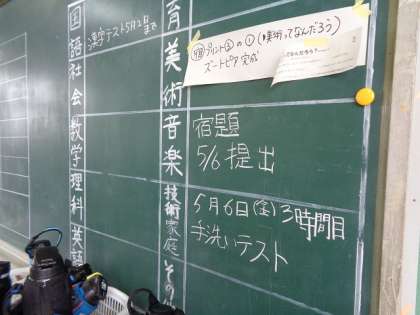 国語
漢字テスト5月2日まで
社会
数学
理科
英語
育
美術
プリント②の①(美術ってなんだろう)
ズートピア完成
音楽
宿題
5/6提出
技術家庭
5月6日(金)3時間目
手洗いテスト
その